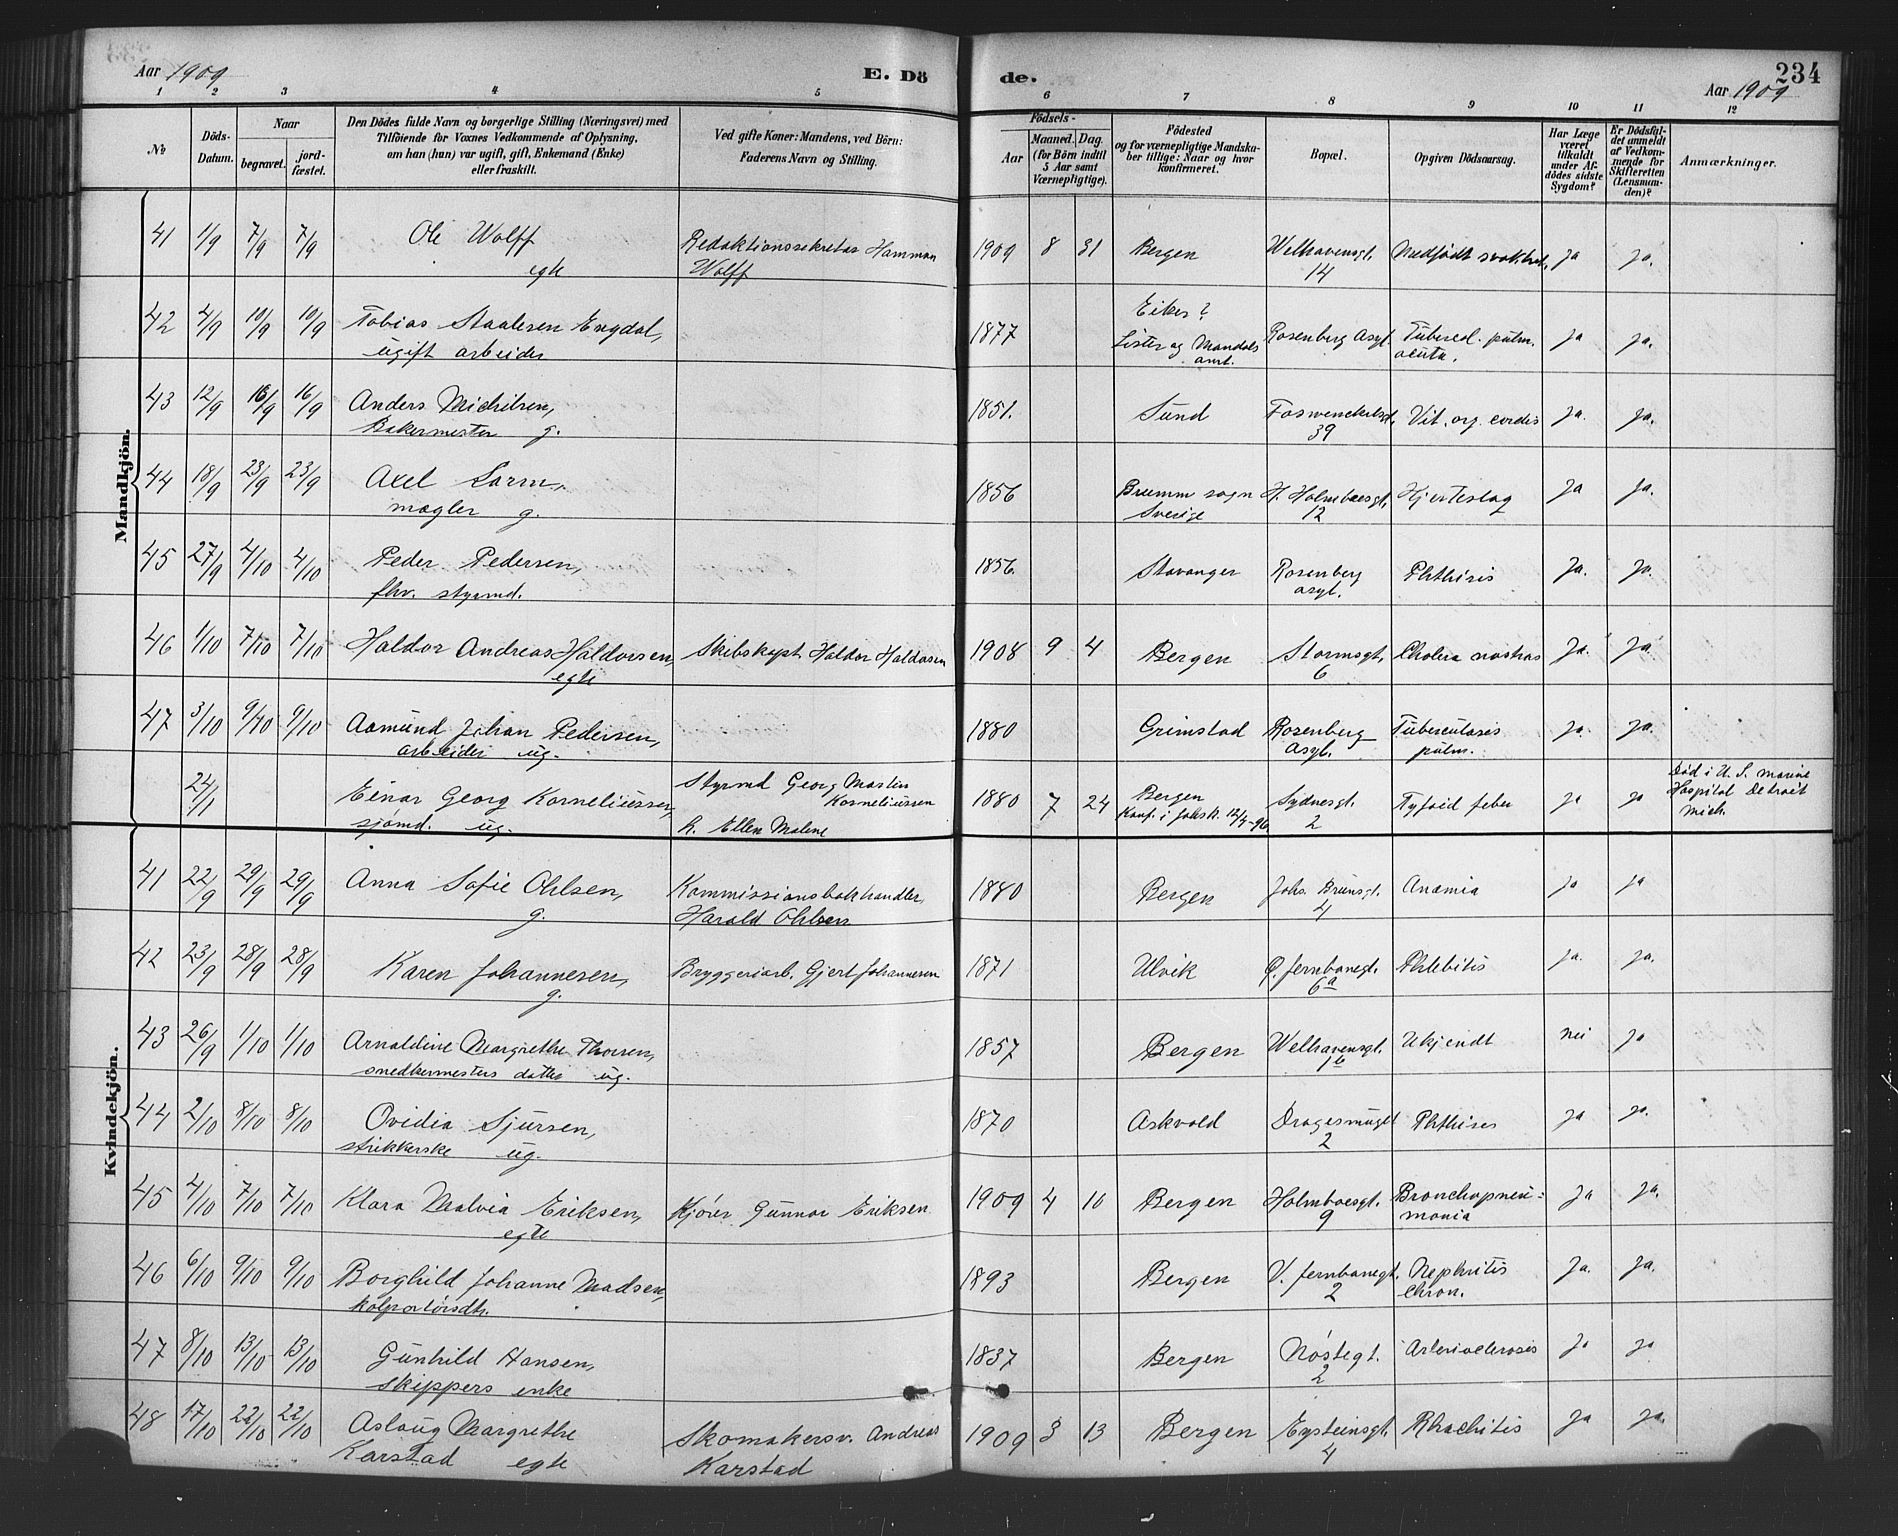 Aar 1909
E. Dö
de.
234
Aar 1909
1 2 3 4 5 6 7 8 9 10 11 12
№
Döds-Datum.
Naar
begravet.
jord-fæstet.
Den Dödes fulde Navn og borgerlige Stilling (Næringsvei) med
Tilföiende for Voxnes Vedkommende af Oplysning,
om han (hun) var ugift, gift, Enkemand (Enke)
eller fraskilt.
Ved gifte Koner: Mandens, ved Börn:
Faderens Navn og Stilling.
Födsels-
Aar
Maaned. Dag.
(for Börn indtil
5 Aar samt
Værnepligtige).
Födested
og for værnepligtige Mandska-
ber tillige: Naar og hvor
konfirmeret.
Bopæl.
Opgiven Dödsaarsag.
Har Læge
været
tilkaldt
under Af-
dödes sidste
Sygdom?
Er Dödsfal-
det anmeldt
af Vedkom-
mende for
Skifteretten
(Lensman-
den)?
Anmærkninger.
Mandkjön.
41 1/9 7/9 7/9 Ole Wolff Redaktionssekretær Hamman 1909 8 31 Bergen Welhavensgt. Medfödt svakhet. ja ja.
egte Wolff 14
42 4/9 10/9 10/9 Tobias Staalesen Engdal, 1877 Eiker? Rosenberg Asyl. Tubercul. pulm. ja ja.
ugift arbeider Lister og Mandals amt. acuta.
43 12/9 16/9 16/9 Anders Michelsen, 1851. Sund Foswenckelsgt. Vit. org. cordis ja. ja.
Bakermester g. 39
44 18/9 23/9 23/9 Axel 1856 sogn H. Holmboesgt. Hjerteslag ja ja.
mægler g. Sverige 12
45 27/9 4/10 4/10 Peder Pedersen, 1856. Stavanger Rosenberg Phthisis Ja. Ja.
fhv. styrmd. asyl.
46 1/10 7/10 7/10 Haldor Andreas Haldorsen, Skibskapt. Haldor Haldorsen 1908 9 4 Bergen Stormsgt. Cholera nostras Ja. Ja
egte 6
47 3/10 9/10 9/10 Aamund Johan Pedersen, 1880 Grimstad Rosenberg Tuberculosis ja. ja.
arbeider ug. Asyl. pulm.
24/1 Einar Georg Korneliussen, Styrmd Georg Martin Korneliussen 1880 7 24 Bergen Sydnesgt. Tyfoid feber ja ja Död i U. S. marine
sjömd. ug. h. Ellen Malene Konf. i Johsk. 12/4-96 2 Hospital Detroit
Mich.
Kvindekjön.
41 22/9 29/9 29/9 Anna Sofie Ohlsen, Kommissionsbokhandler, 1880 Bergen Johs. Brunsgt. Anæmia ja ja
g. Harald Ohlsen 4
42 23/9 28/9 28/9 Karen Johannesen, Bryggeriarb. Gjert Johannesen 1871 Ulvik Ø. Jernbanegt. Phlebitis ja. ja.
g. 6a
43 26/9 1/10 1/10 Arnoldine Margrethe Thorsen, 1857 Bergen Welhavensgt. Ukjendt nei ja
snedkermesters datter ug.
44 2/10 8/10 8/10 Ovidia Sjursen, 1870 Askvold Dragesmuget Phthises ja ja.
strikkerske ug. 2
45 4/10 7/10 7/10 Klara Malvia Eriksen, Kjörer Gunnar Eriksen 1909 4 10 Bergen Holmboesgt. Bronchopneu- ja ja.
egte 9 monia
46 6/10 9/10 9/10 Borghild Johanne Madsen, 1893 Bergen V. Jernbanegt. Nephritis Ja. Ja.
kolportörsdtr. 2 chron.
47 8/10 13/10 13/10 Gunhild Hansen, 1837 Bergen Nöstegt. Arteriosclerosis Ja ja
skippers enke 2
48 17/10 22/10 22/10 Aslaug Margrethe Skomakersv. Andreas 1909 3 13 Bergen Eysteinsgt. Rhachitis ja ja.
Karstad egte Karstad 4